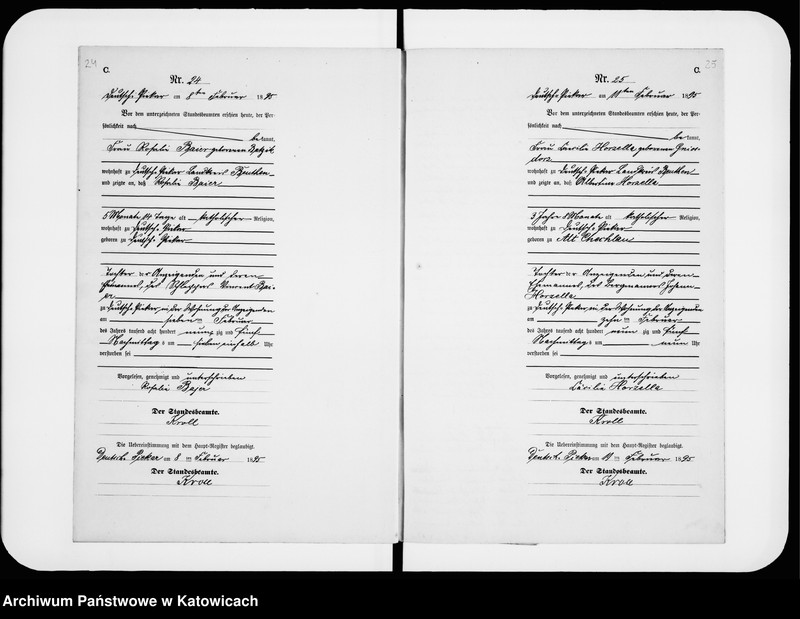 24
C.
Nr. 24
Deutsch-Piekar am 8ten Februar 1895
Vor dem unterzeichneten Standesbeamten erschien heute, der Per-
sönlichkeit nach
be kannt,
Frau Rosalie Baier geborenen
wohnhaft zu Deutsch-Piekar Landkreis Beuthen
und zeigte an, daß Rosalie Baier
5 Monate 14 Tage alt katholischer Religion,
wohnhaft zu Deutsch-Piekar
geboren zu Deutsch-Piekar
Tochter der Anzeigenden und deren
Ehemannes, des Vincent Bai-
er
zu Deutsch-Piekar, in der Wohnung der Anzeigenden
am sieben ten Februar
des Jahres tausend acht hundert neun zig und fünf
Nachmittags um sieben einhalb Uhr
verstorben sei
Vorgelesen, genehmigt und unterschrieben
Rosalie Bajer
Der Standesbeamte.
Kroll
Die Uebereinstimmung mit dem Haupt-Register beglaubigt.
Deutsch-Piekar am 8 ten Februar 1895
Der Standesbeamte.
Kroll
25
C.
Nr. 25
Deutsch-Piekar am 11ten Februar 1895
Vor dem unterzeichneten Standesbeamten erschien heute, der Per-
sönlichkeit nach
be kannt,
Frau Cäcilie Horzella geborenen Gwios-
dorz
wohnhaft zu Deutsch-Piekar Landkreis Beuthen
und zeigte an, daß Albertine Horzella
3 Jahre 8 Monate alt katholischer Religion,
wohnhaft zu Deutsch-Piekar
geboren zu Alt Chechlau
Tochter der Anzeigenden und deren
Ehemannes, des Bergmannes Johann
Horzella
zu Deutsch-Piekar, in der Wohnung der Anzeigenden
am zehn ten Februar
des Jahres tausend acht hundert neun zig und fünf
Nachmittags um neun Uhr
verstorben sei
Vorgelesen, genehmigt und unterschrieben
Cäcilie Horzella
Der Standesbeamte.
Kroll
Die Uebereinstimmung mit dem Haupt-Register beglaubigt.
Deutsch-Piekar am 11 ten Februar 1895
Der Standesbeamte.
Kroll
Archiwum Państwowe w Katowicach